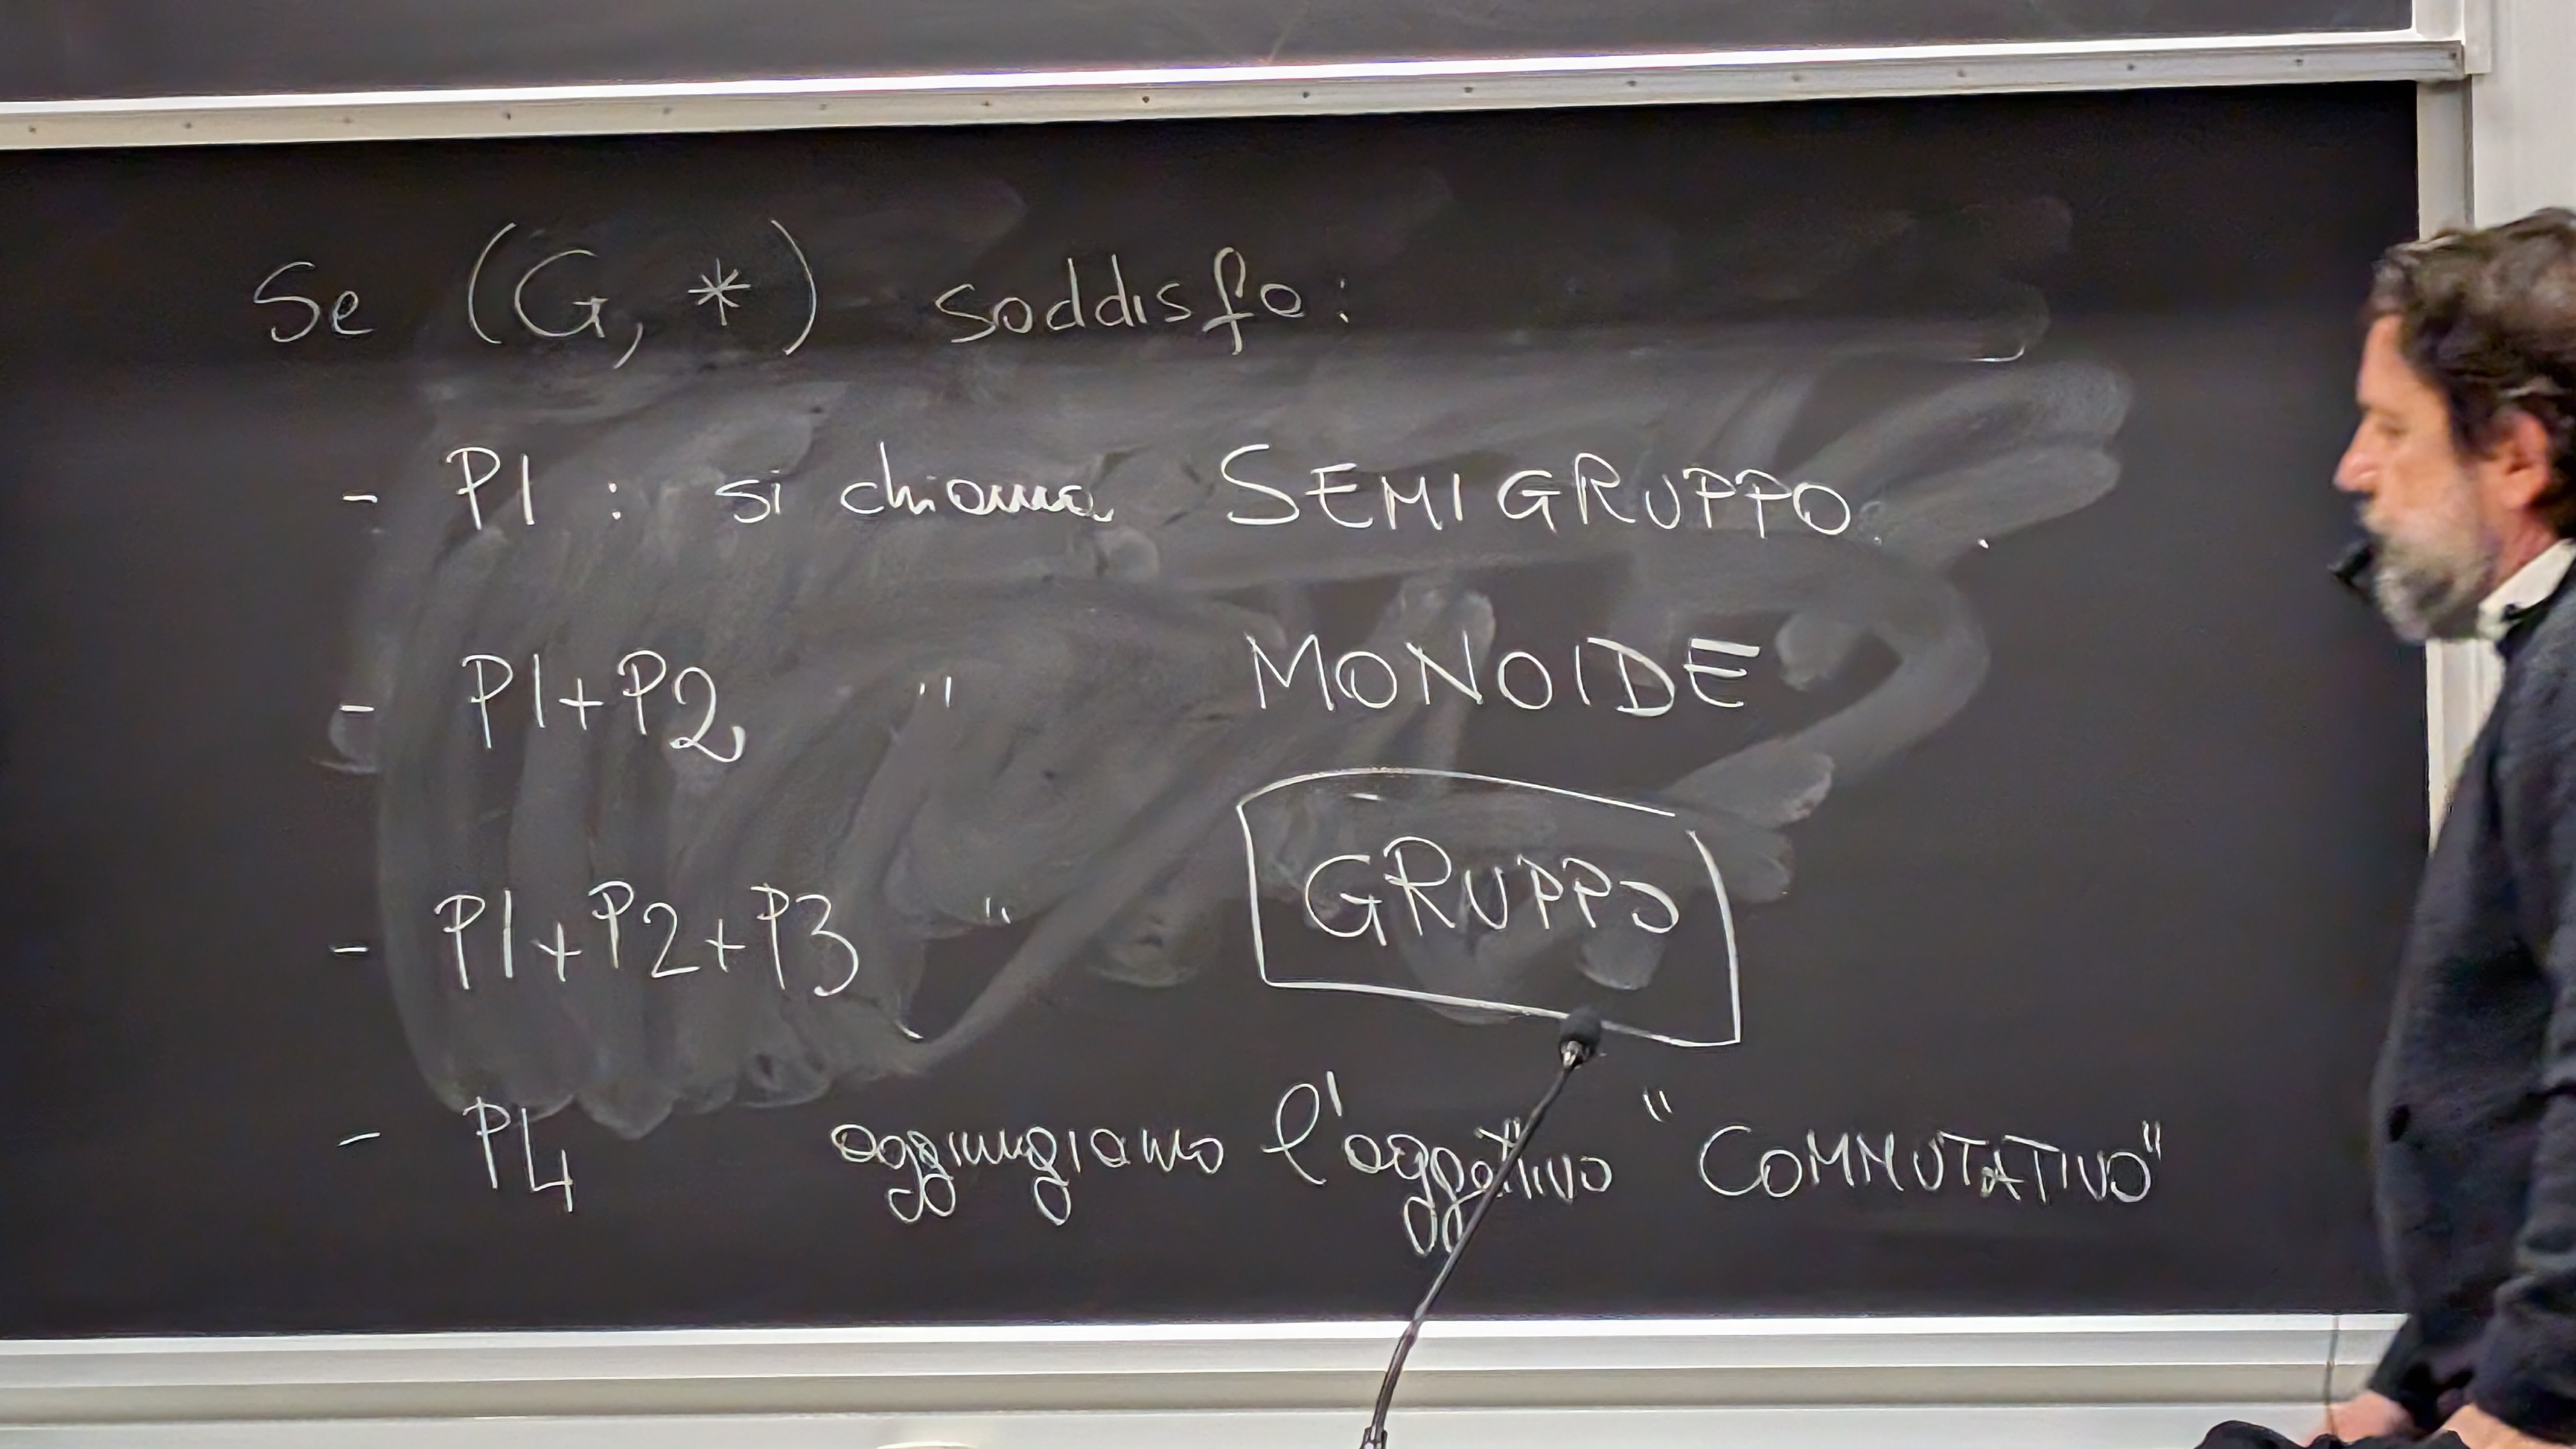 Se (G, *) soddisfa:
- P1 : si chiama SEMIGRUPPO.
- P1+P2 " MONOIDE
- P1+P2+P3 " GRUPPO
- P4 aggiungiamo l'aggettivo "COMMUTATIVO"